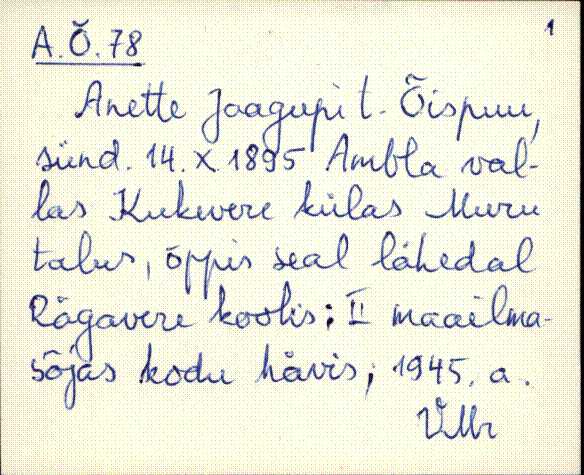 1
A.Õ.78
Anette Jaagupi t. Õispuu,
sünd. 14. X 1895 Ambla val-
las Kukevere külas Muru
talus, õppis seal lähedal
Rägavere koolis; II maailma-
sõjas kodu hävis; 1945. a.
VMr